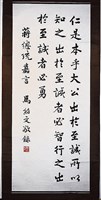 仁是本乎大公出於至誠所以
知之出於至誠者必智行之出
於至誠者必勇
蔣總統嘉言 馬 文敬錄